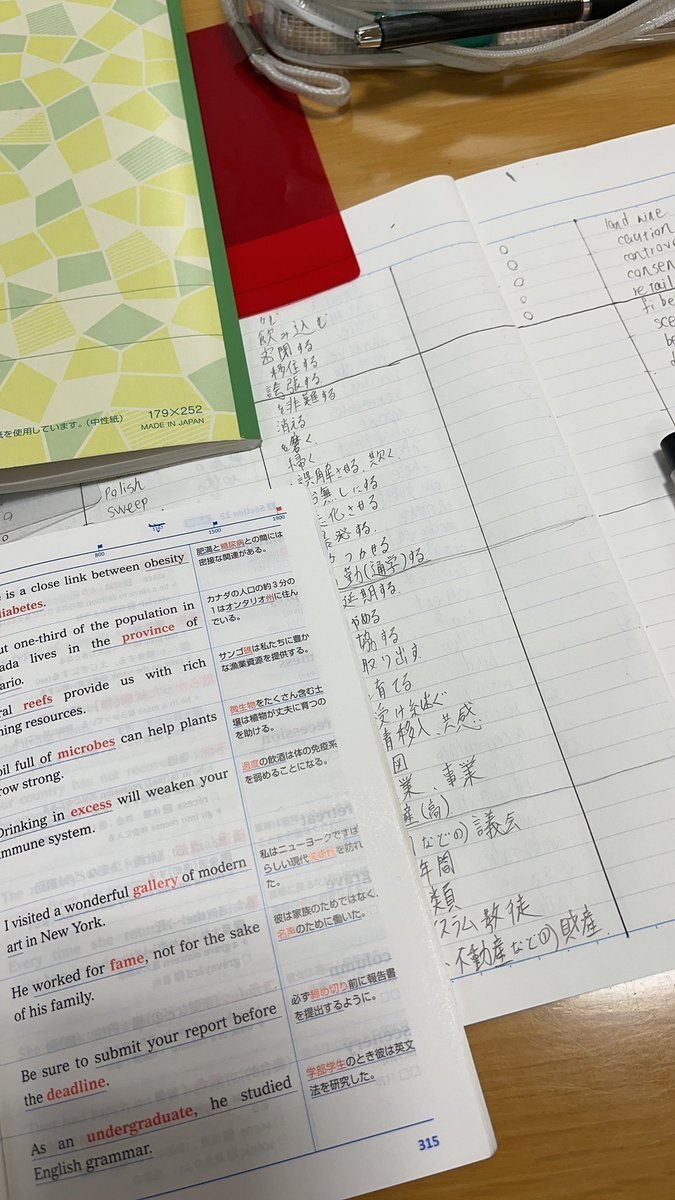 を使用しています。(中性紙)
179×252
MADE IN JAPAN
polish
sweep
飲み込む
密閉する
移住する
誇張する
を非難する
消える
を磨く
掃く
誤解させる、欺く
無しにする
化させる
する
つかせる
勤(通学)する
延期する
やめる
協する
取り出す
育てる
受け継ぐ
情移入、共感
図
業、事業
産(高)
などの)議会
年間
類
スラム教徒
不動産などの)財産
land mine
caution
controv
consen
retail
fibe
sce
be
800
1500
1900
e is a close link between obesity
diabetes.
肥満と糖尿病との間には
密接な関連がある。
ut one-third of the population in
ada lives in the province of
ario.
カナダの人口の約3分の
1はオンタリオ州に住ん
でいる。
ral reefs provide us with rich
hing resources.
サンゴ礁は私たちに豊か
な漁業資源を提供する。
oil full of microbes can help plants
row strong.
微生物をたくさん含む土
壌は植物が丈夫に育つの
を助ける。
Drinking in excess will weaken your
mmune system.
過度の飲酒は体の免疫系
を弱めることになる。
I visited a wonderful gallery of modern
art in New York.
私はニューヨークですば
らしい現代美術館を訪れ
た。
He worked for fame, not for the sake
of his family.
彼は家族のためではなく、
名声のために働いた。
Be sure to submit your report before
the deadline.
必ず締め切り前に報告書
を提出するように。
As an undergraduate, he studied
English grammar.
学部学生のとき彼は英文
法を研究した。
315